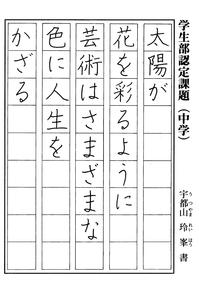 学生部認定課題（中学）
宇都山 玲峯 書
うつやま れいほう
太陽が
花を彩るように
芸術はさまざまな
色に人生を
かざる